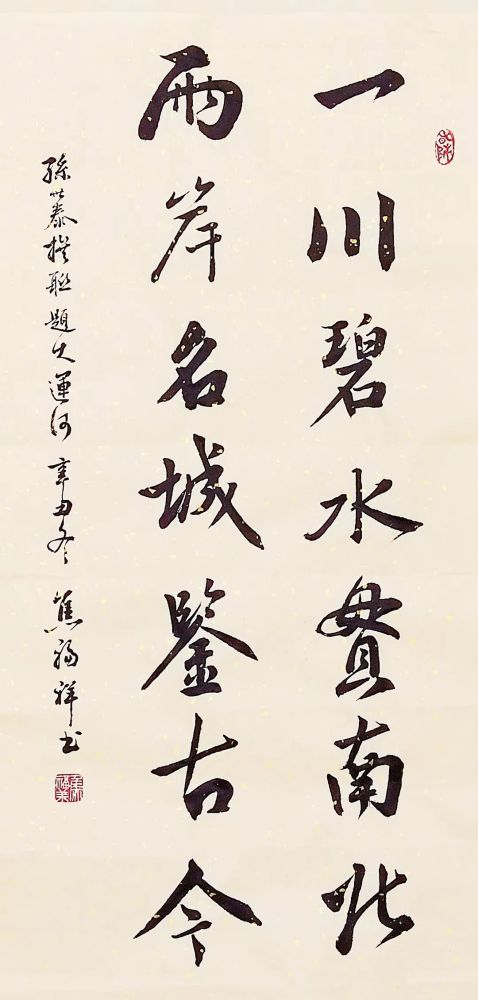 一川碧水貫南北
兩岸名城鑒古今
孫世泰撰聯題大運河 辛丑冬 焦福祥书